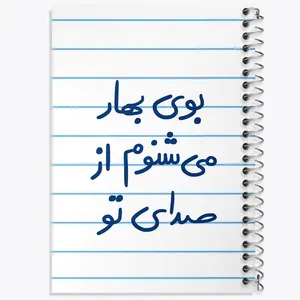 بوی بهار
می‌شنوم از
صدای تو